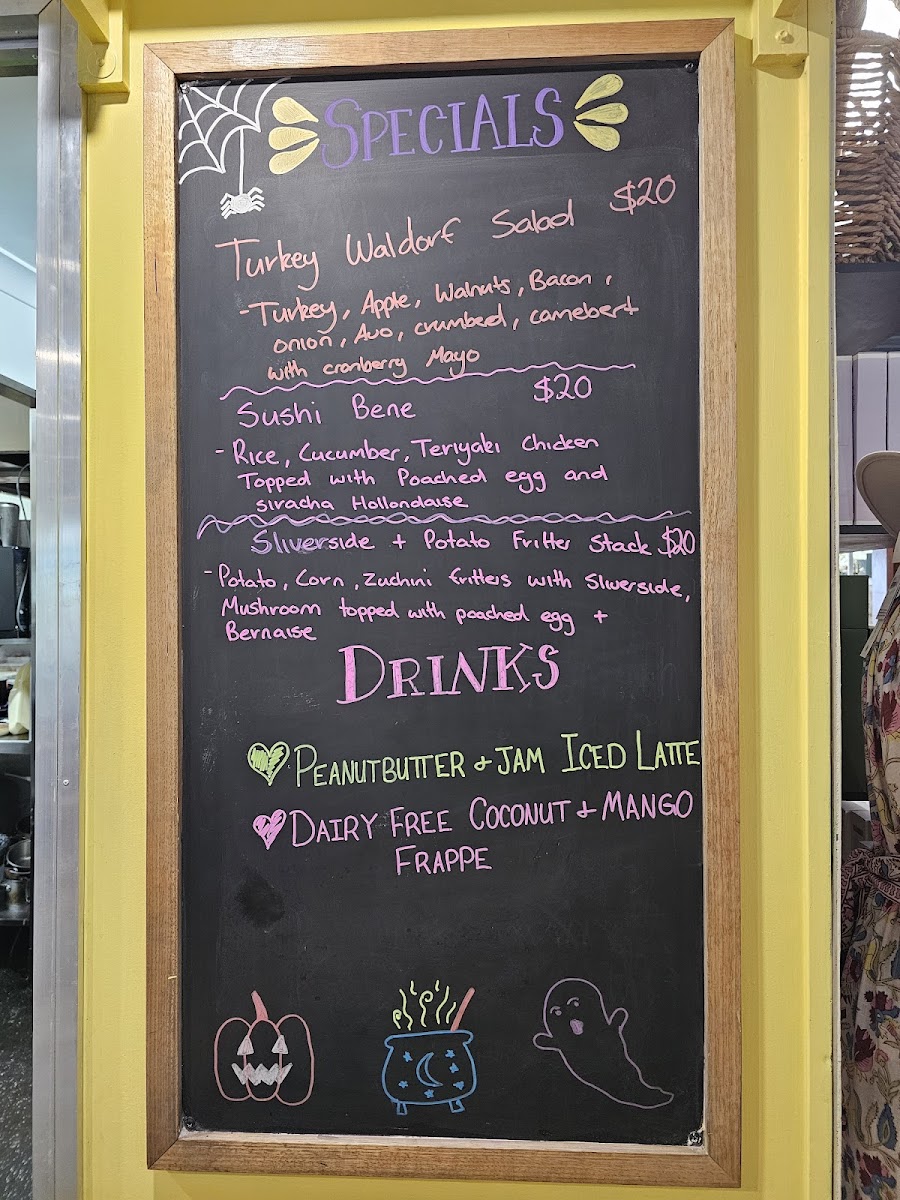 SPECIALS
Turkey Waldorf Salad $20
- Turkey, Apple, Walnuts, Bacon,
onion, Avo, crumbed, camebert
with cranberry Mayo
Sushi Bene $20
- Rice, Cucumber, Teriyaki Chicken
Topped with Poached egg and
siracha Hollondaise
Sliverside + Potato Fritter Stack $20
- Potato, Corn, Zuchini fritters with Sliverside,
Mushroom topped with poached egg +
Bernaise
DRINKS
PEANUTBUTTER & JAM ICED LATTE
DAIRY FREE COCONUT & MANGO
FRAPPE